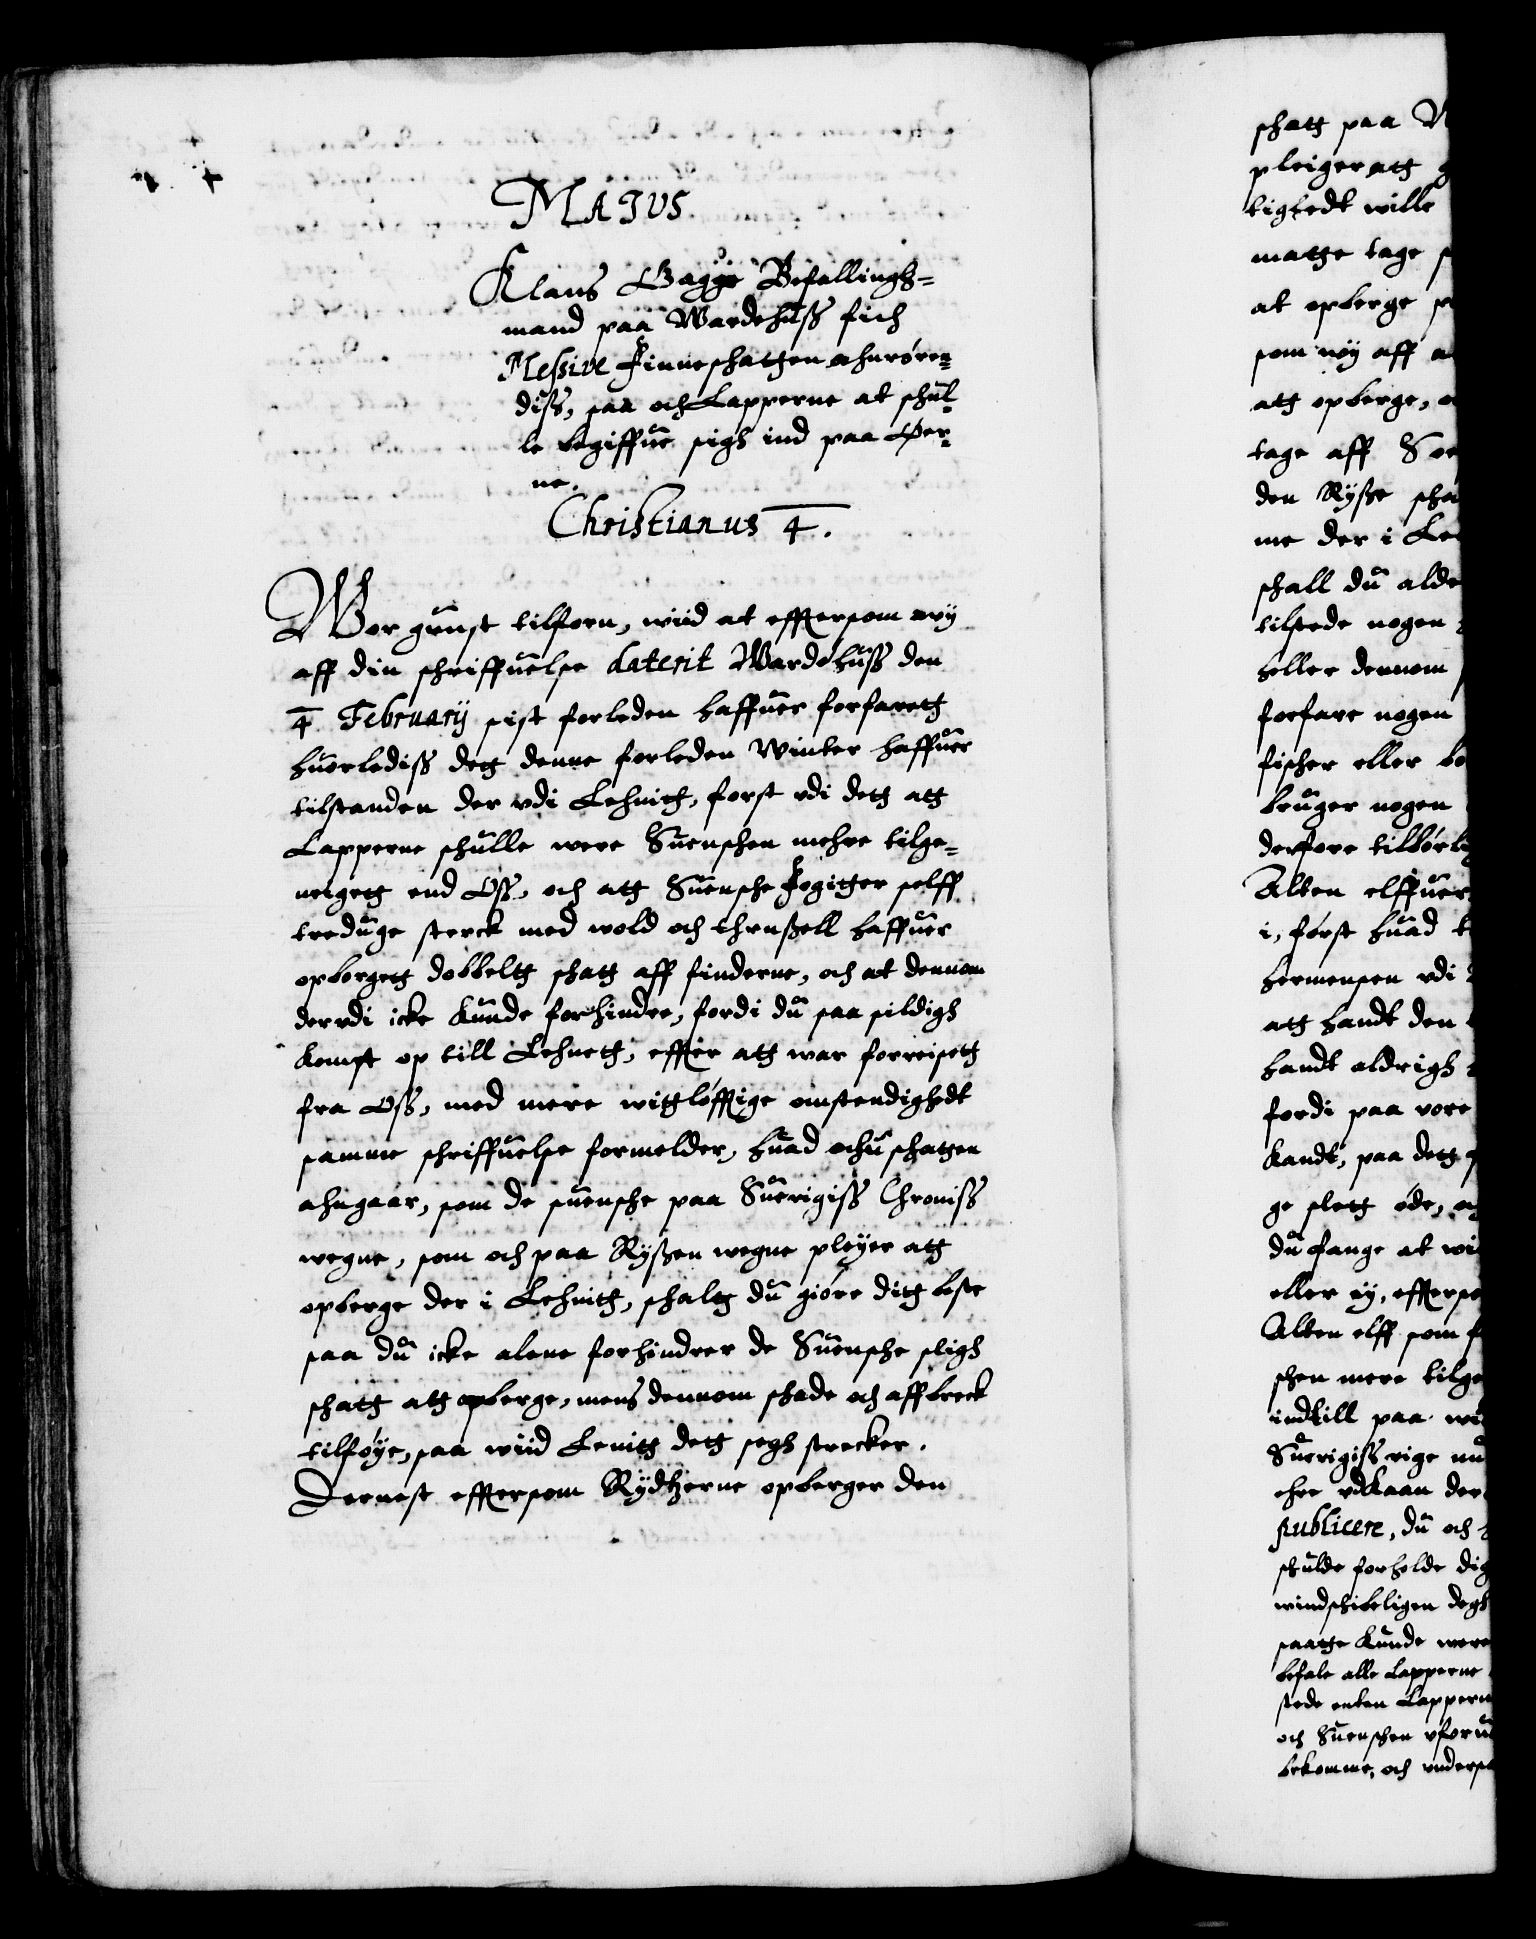 MAIVS.
Klaus Gagge Befallingh=
mand paa Wardehuss fich
Messive Finneschatgen ahnrøren=
diss, saa och Lapperne at schul=
le begiffue sigh ind paa Øer=
ne.
Christianus 4.
Wor gunst tilforn, wiid at effttersom wy
aff din schriffuelse daterit Wardøhuss den
4 February sist forleden haffuer forfaretg
huorlediss detg denne forleden Winter haffuer
tilstanden der vdi Lehnitg, forst vdi detg atg
Lapperne schulle were Suenschen mehre tilge=
neigetg end Oss, och atg Suensche Fogitger selff
treduge sterck med wold och thrussell haffuer
opbergetg dobbeltg schatg aff finderne, och at dennom
dervdi icke kunde forhindre, fordi du saa sildigh
kompst op till Lehnetg, effter atg war forreisetg
fra Oss, med mere witgløfftige omstendighedt
samme schriffuelse formelder, huad ochu schatgen
ahngaar, som de suensche paa Suerigiss Chroniss
wegne, som och paa Ryssen wegne pleyer atg
opberge der i Lehnitg, schaltg du giøre ditg beste
saa du icke alene forhindrer de Suensche sligh
schatg atg opberge, mens dennom schade och affbreck
tilføye, saa wiid Lenitg detg segh strecker.
Dernest effttersom Rydtzerne opberger den
schatg paa
pleiger atg
tigtedt wille
matge tage
at opberge
som nøy aff
atg opberge,
tage aff
den Rysse
me der i
schall du
tilstede nogen
heller dennom
forfare nogen
fischer eller
bruger nogen
derfore
Alten elffuer
i, først huad
hermensen vdi
atg handt den
handt aldrigh
fordi paa vore
kandt, paa detg
ge sletg øde,
du fange at
eller ey,
Alten elff som
schen mere
indtill paa
Suerigiss rige
ehre vdkaan
publicere, du och
schulde forholde
windschibeligen
saatge kunde
befale alle Lapperne
stede enten
och Suenschen
bekomme, och